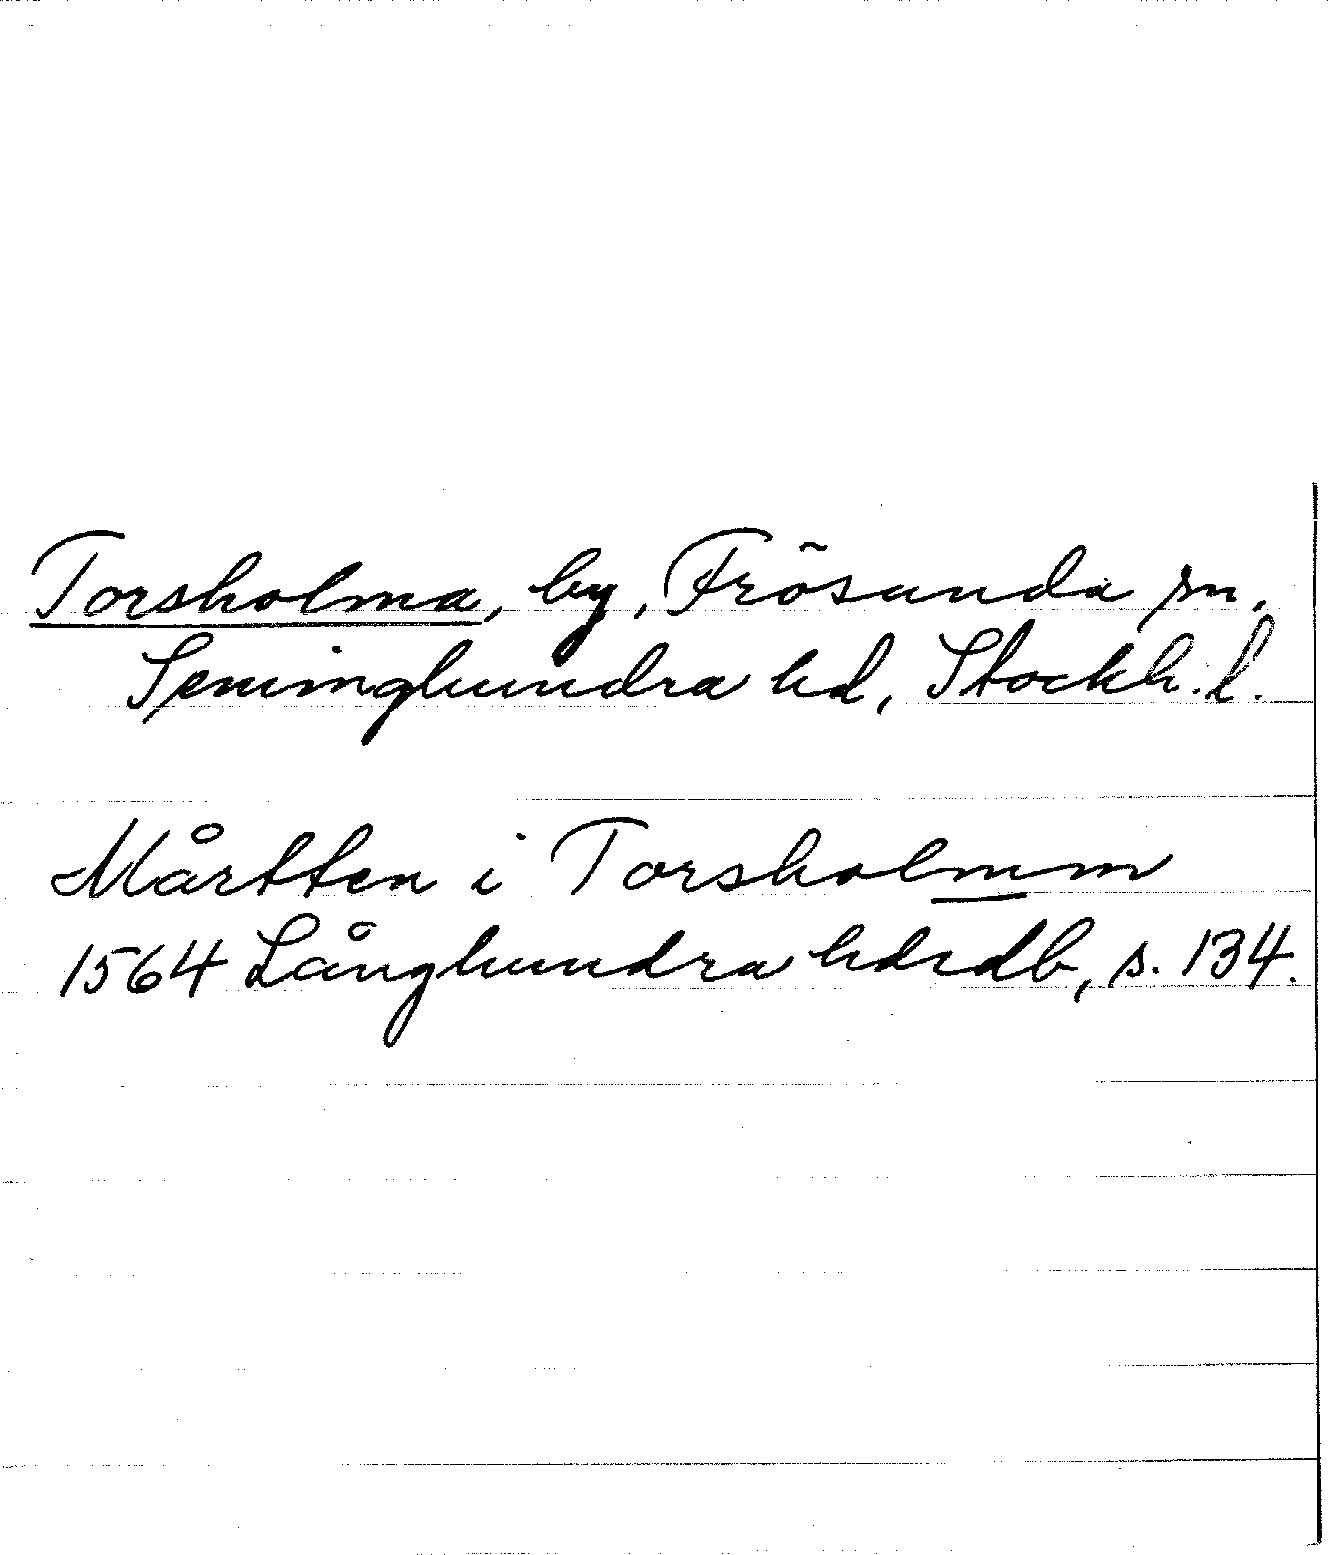 Torsholma, by, Frösunda sn,
Seminghundra hd, Stockh. l.
Mårtten i Torsholmm
1564 Långhundra hdrdb, s. 134.